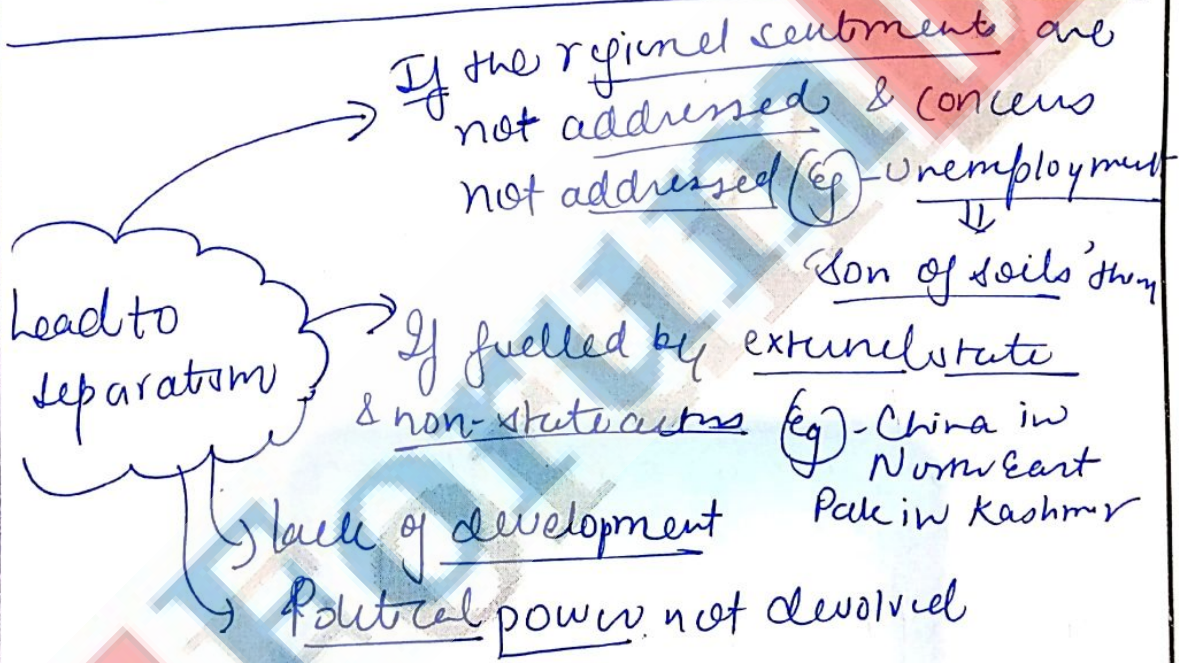 If the regional sentiments are
not addressed & concerns
not addressed (Eg) - Unemployment
⇓
'Son of soils' theory
Lead to
separatism
If fuelled by external state
& non-state actors (Eg) - China in
North East
Pak in Kashmir
lack of development
Political power not devolved
Forum